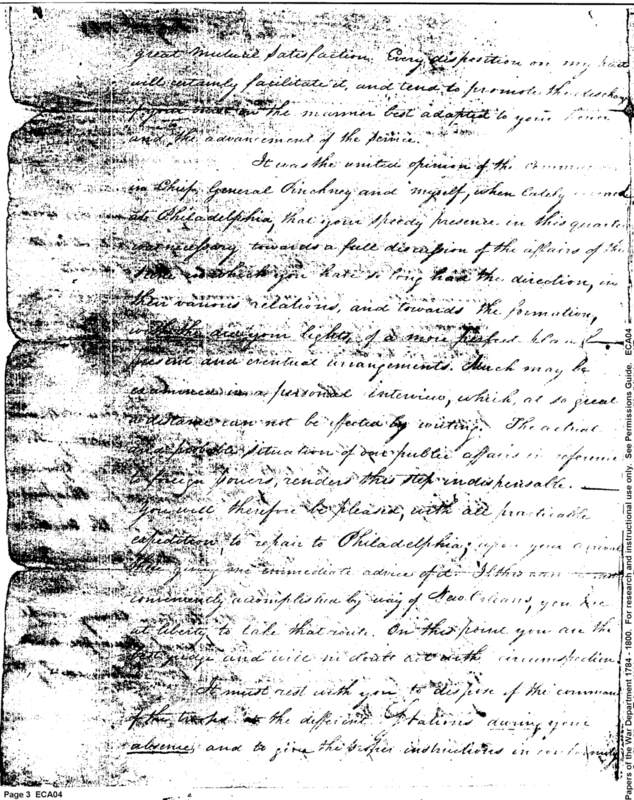 great mutual satisfaction. Every disposition on my part
will certainly facilitate it, and tend to promote the discharge
the manner best adapted to your
and the advancement of the service.
It was the united opinion of the
in Chief, General Pinckney and myself, when lately
at Philadelphia, that your speedy presence in this quarter
was necessary towards a full discussion of the affairs of the
which you have so long had the direction, in
their various relations, and towards the formation,
with the aid your lights, of a more perfect plan for
present and eventual arrangements. Much may be
examined in a personal interview, which, at so great
a distance can not be effected by writing. The actual
and probable situation of our public affairs in reference
to foreign powers, renders this step indispensable.
You will therefore be pleased, with all practicable
expedition, to repair to Philadelphia; upon your arrival
immediate advice of it. If this can be
conveniently accomplished by way of New Orleans, you are
at liberty to take that route. On this point you are the
best judge and will no doubt act with circumspection.
It must rest with you to dispose of the command
of the troops at the different Stations during your
absence, and to give the proper instructions in
Page 3 ECA04
Papers of the War Department 1784 - 1800. For research and instructional use only. See Permissions Guide. ECA04